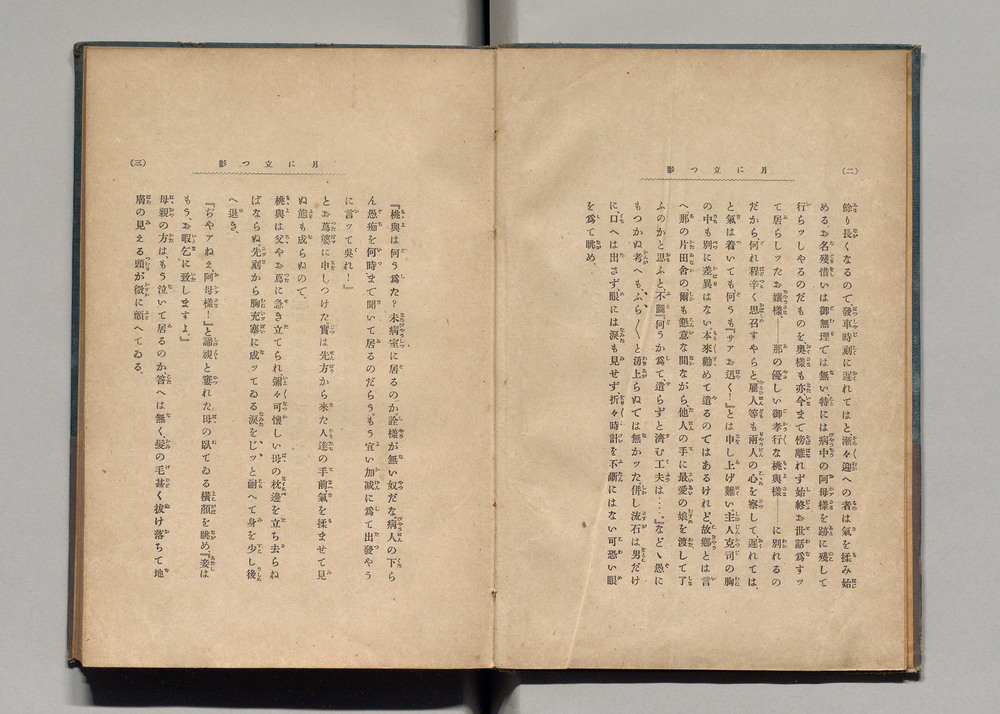 (二)
月に立つ影
餘り長くなるので、發車時刻に遅れてはと、漸々迎への者は氣を揉み始
める、お名殘惜いは御無理では無い、特には病中の阿母様を跡に殘して
行らッしやるのだものを、奥様も亦今まで傍離れず始終お世話為すッ
て居らしッたお孃様――那の優しい御孝行な桃與様――に別れるの
だから、何れ程辛く思召すやらと、雇人等も兩人の心を察して遅れては、
と氣は着いても何うも『サアお迅く!』とは申し上げ難い、主人克司の胸
の中も別に差異はない、本來勸めて遣るのではあるけれど、故郷とは言
へ那の片田舎の爾も懇意な間ながら、他人の手に最愛の娘を渡して了
ふのかと思ふと不圖『何うか為て遣らずと濟む工夫は‥‥』などゝ愚に
もつかぬ考へも、ふら〳〵と湧上らぬでは無かッた、併し流石は男だけ
に口へは出さず、眼には涙も見せず、折々時計を不斷にはない可恐い眼
を為て眺め、
(三)
月に立つ影
『桃與は何う為た?未病室に居るのか、詮様が無い奴だな、病人の下ら
ん愚痴を何時まで聞いて居るのだらう、もう宜い加减に為て出發やう
に言ッて呉れ!』
とお葛婆に申しつけた、實は先方から來た人達の手前氣を揉ませて見
ぬ態も成らぬので。
桃與は父やお葛に急き立てられ、彌々可懷しい母の枕邊を立ち去らね
ばならぬ、先刻から胸充塞に成ッてゐる涙を、じッと耐へて身を少し後
へ退き、
『ぢやアねえ、阿母様!』と諦視と窶れた母の臥てゐる横顔を眺め『妾は
もう、お暇乞に致しますよ。』
母親の方は、もう泣いて居るのか答へは無く、髮の毛甚く拔け落ちて地
膚の見える頭が微に顫へてゐる。